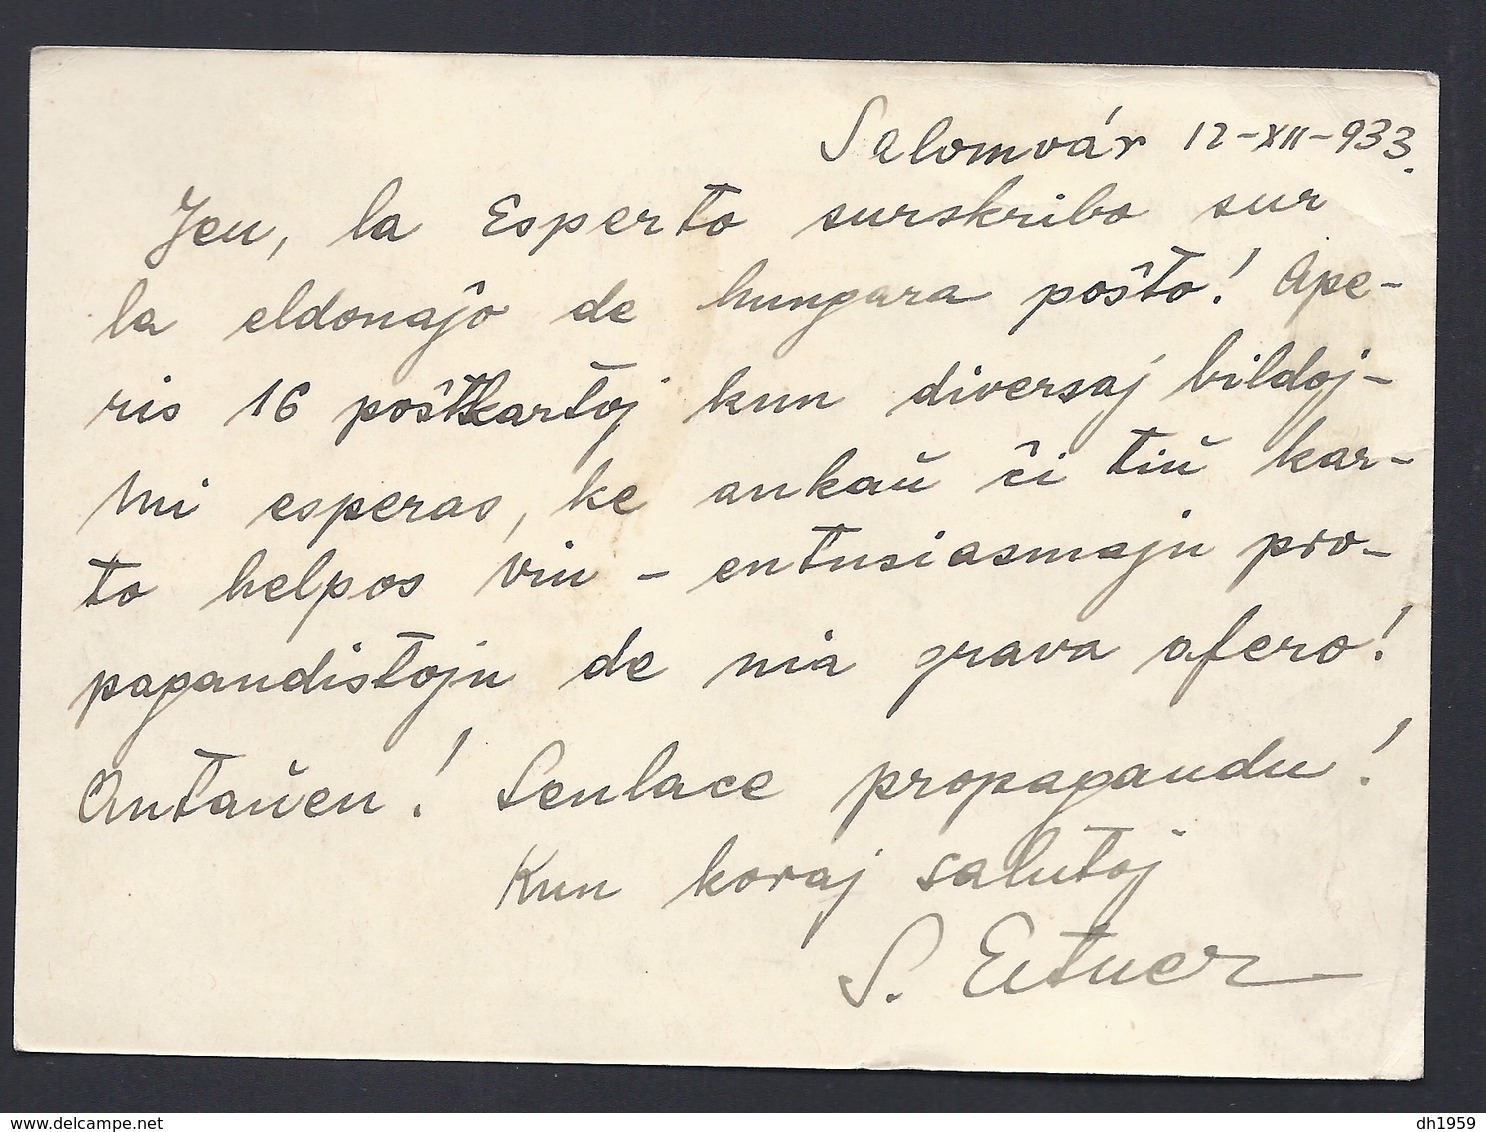 Salomvár 12-XII-933.
Jeu, la Esperto surskribo sur
la eldonaĵo de hungara poŝto! Ape-
ris 16 poŝtkartoj kun diversaj bildoj-
Mi esperas, ke ankaŭ ĉi tiu kar-
to helpos vin - entusiasmajn pro-
pagandistojn de nia grava afero!
Antaŭen! Senlace propagandu!
Kun koraj salutoj
S. Eitner
delcampe.net
dh1959